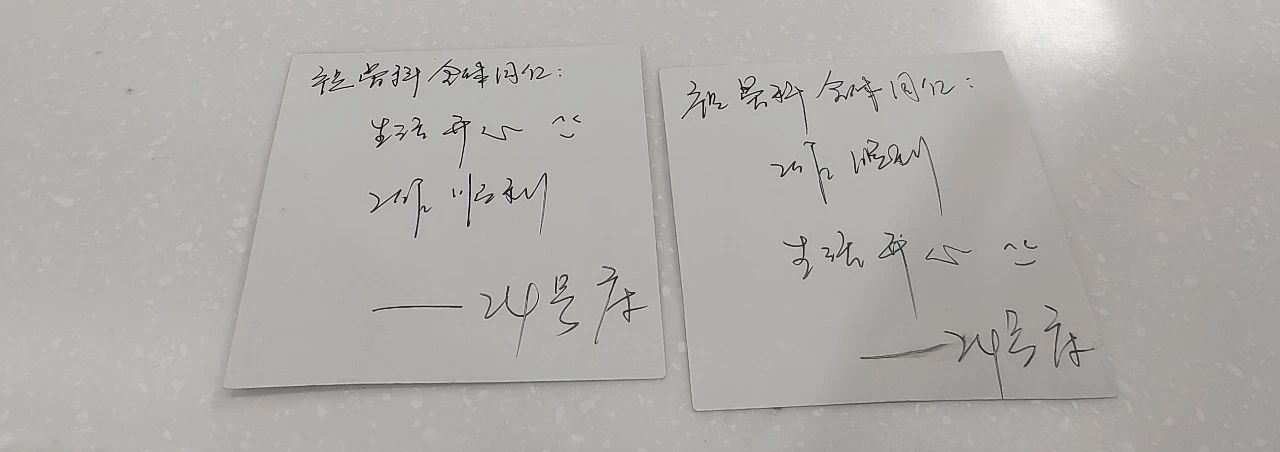 祝骨科全体同仁:
生活开心
工作顺利
——24号床
祝骨科全体同仁:
工作顺利
生活开心
——24号床